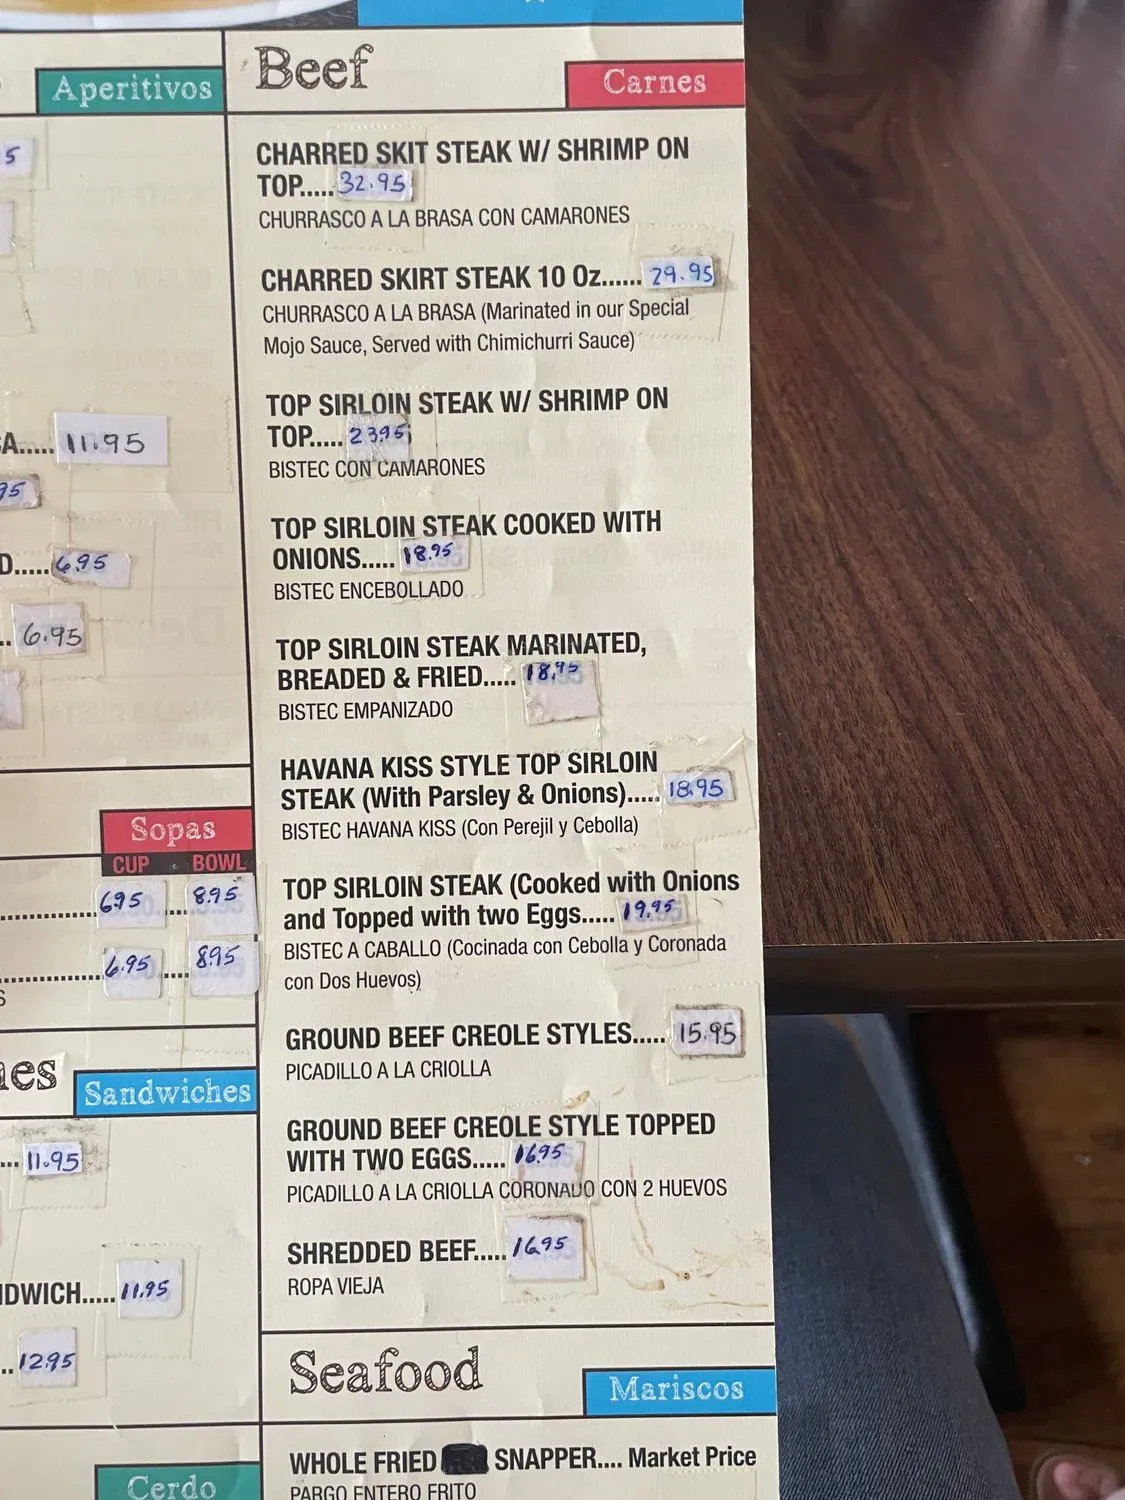 Aperitivos
5
A.....11.95
95
D.....6.95
..6.95
Sopas
CUP . BOWL
6.95.....8.95
6.95.....8.95
S
Sandwiches
...11.95
DWICH.....11.95
..12.95
Cerdo
Beef
Carnes
CHARRED SKIT STEAK W/ SHRIMP ON
TOP.....32.95
CHURRASCO A LA BRASA CON CAMARONES
CHARRED SKIRT STEAK 10 Oz......29.95
CHURRASCO A LA BRASA (Marinated in our Special
Mojo Sauce, Served with Chimichurri Sauce)
TOP SIRLOIN STEAK W/ SHRIMP ON
TOP.....23.95
BISTEC CON CAMARONES
TOP SIRLOIN STEAK COOKED WITH
ONIONS.....18.95
BISTEC ENCEBOLLADO
TOP SIRLOIN STEAK MARINATED,
BREADED & FRIED.....18.95
BISTEC EMPANIZADO
HAVANA KISS STYLE TOP SIRLOIN
STEAK (With Parsley & Onions).....18.95
BISTEC HAVANA KISS (Con Perejil y Cebolla)
TOP SIRLOIN STEAK (Cooked with Onions
and Topped with two Eggs.....19.95
BISTEC A CABALLO (Cocinada con Cebolla y Coronada
con Dos Huevos)
GROUND BEEF CREOLE STYLES.....15.95
PICADILLO A LA CRIOLLA
GROUND BEEF CREOLE STYLE TOPPED
WITH TWO EGGS.....16.95
PICADILLO A LA CRIOLLA CORONADO CON 2 HUEVOS
SHREDDED BEEF.....16.95
ROPA VIEJA
Seafood
Mariscos
WHOLE FRIED SNAPPER.... Market Price
PARGO ENTERO FRITO